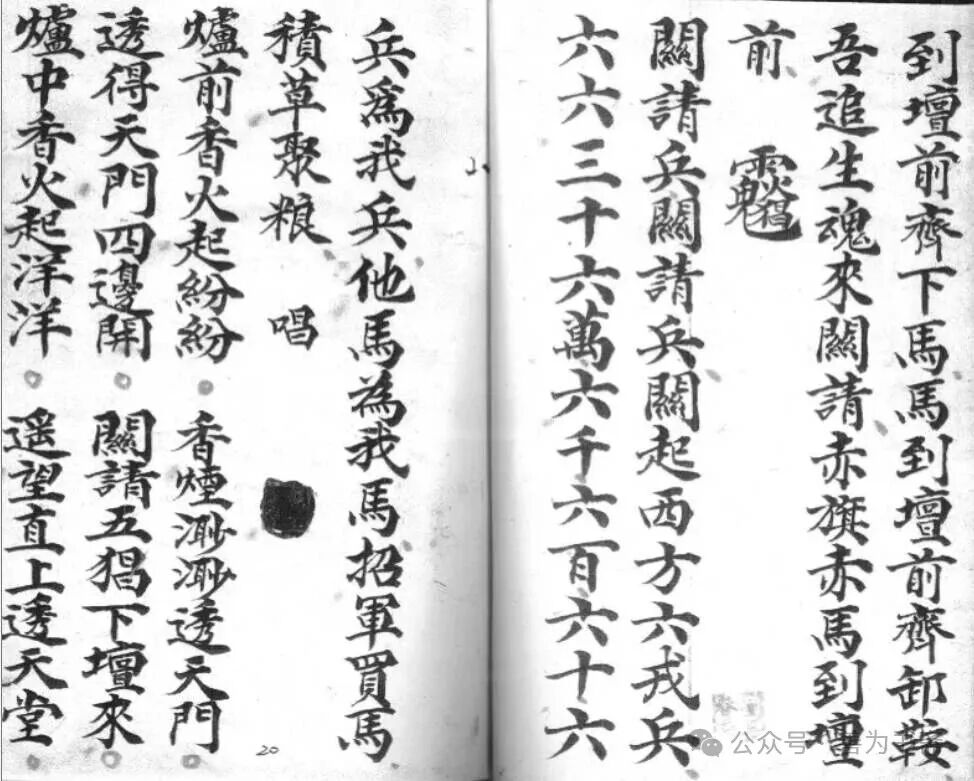 到壇前齊下馬馬到壇前齊卸鞍
吾追生魂來關請赤旗赤馬到壇
前
關請兵關請兵關起西方六戎兵
六六三十六萬六千六百六十六
兵爲我兵他馬為我馬招軍買馬
積草聚粮 唱
爐前香火起紛紛 香煙渺渺透天門
透得天門四邊開 關請五猖下壇來
爐中香火起洋洋 遥望直上透天堂
20
公众号·善为